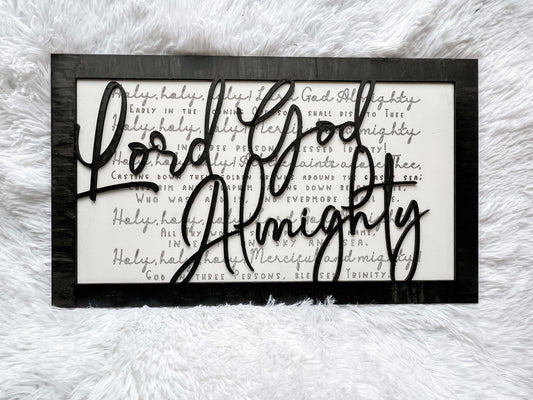 Lord God
Almighty
Holy, holy, holy! Lord God Almighty
Early in the morning our song shall rise to Thee
Holy, holy, holy! Merciful and mighty
God in three Persons, blessed Trinity!
Holy, holy, holy! All the saints adore Thee,
Casting down their golden crowns around the glassy sea;
Cherubim and seraphim falling down before Thee,
Who was and is and evermore shall be.
Holy, holy, holy! Lord God Almighty!
All Thy works shall praise Thy name,
in earth and sky and sea.
Holy, holy, holy! Merciful and mighty!
God in three Persons, blessed Trinity.